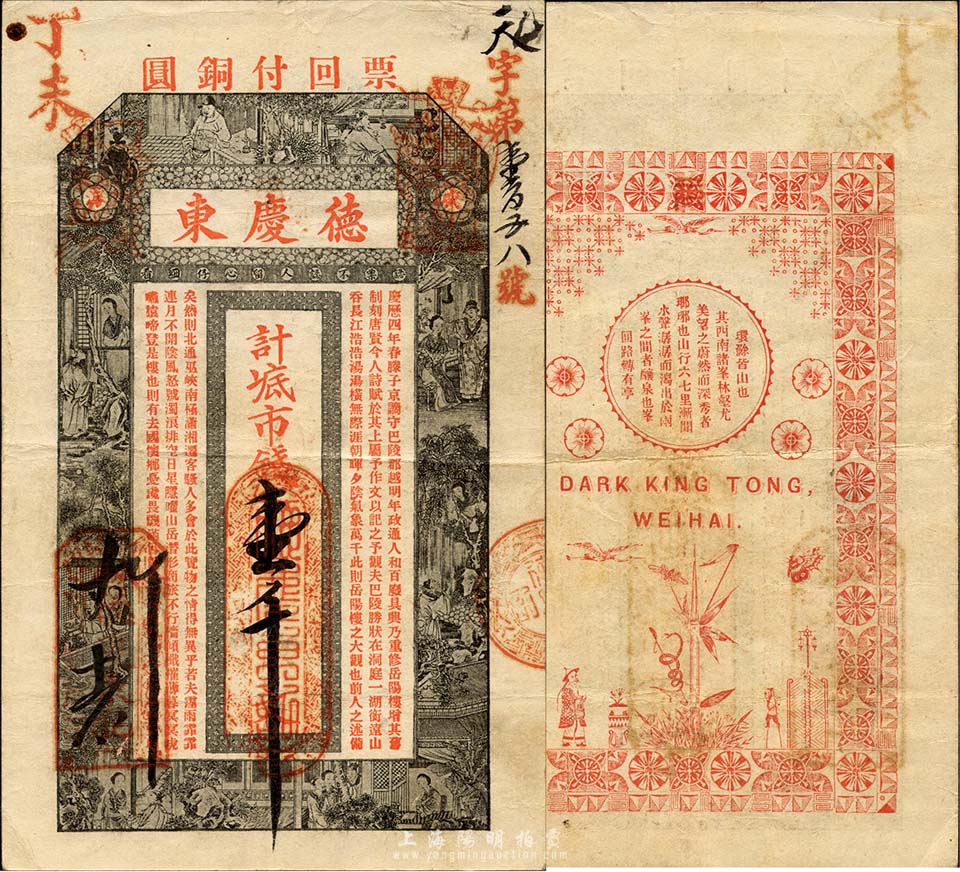 丁未
票回付銅圓
天字第壹百五八號
德慶東
認票不認人
計底市錢
壹千
慶歷四年春滕子京謫守巴陵郡越明年政通人和百廢具興乃重修岳陽樓增其舊
制刻唐賢今人詩賦於其上屬予作文以記之予觀夫巴陵勝狀在洞庭一湖銜遠山
吞長江浩浩湯湯橫無際涯朝暉夕陰氣象萬千此則岳陽樓之大觀也前人之述備
矣然則北通巫峽南極瀟湘遷客騷人多會於此覽物之情得無異乎若夫霪雨霏霏
連月不開陰風怒號濁浪排空日星隱曜山岳潛形商旅不行檣傾
登是樓也則有去國懷鄉憂讒畏譏
環滁皆山也
其西南諸峯林壑尤
美望之蔚然而深秀者
瑯琊也山行六七里漸聞
水聲潺潺而瀉出於兩
峯之間者釀泉也峯
回路轉有亭
DARK KING TONG,
WEIHAI.
上海陽明拍賣
www.yangmingauction.com